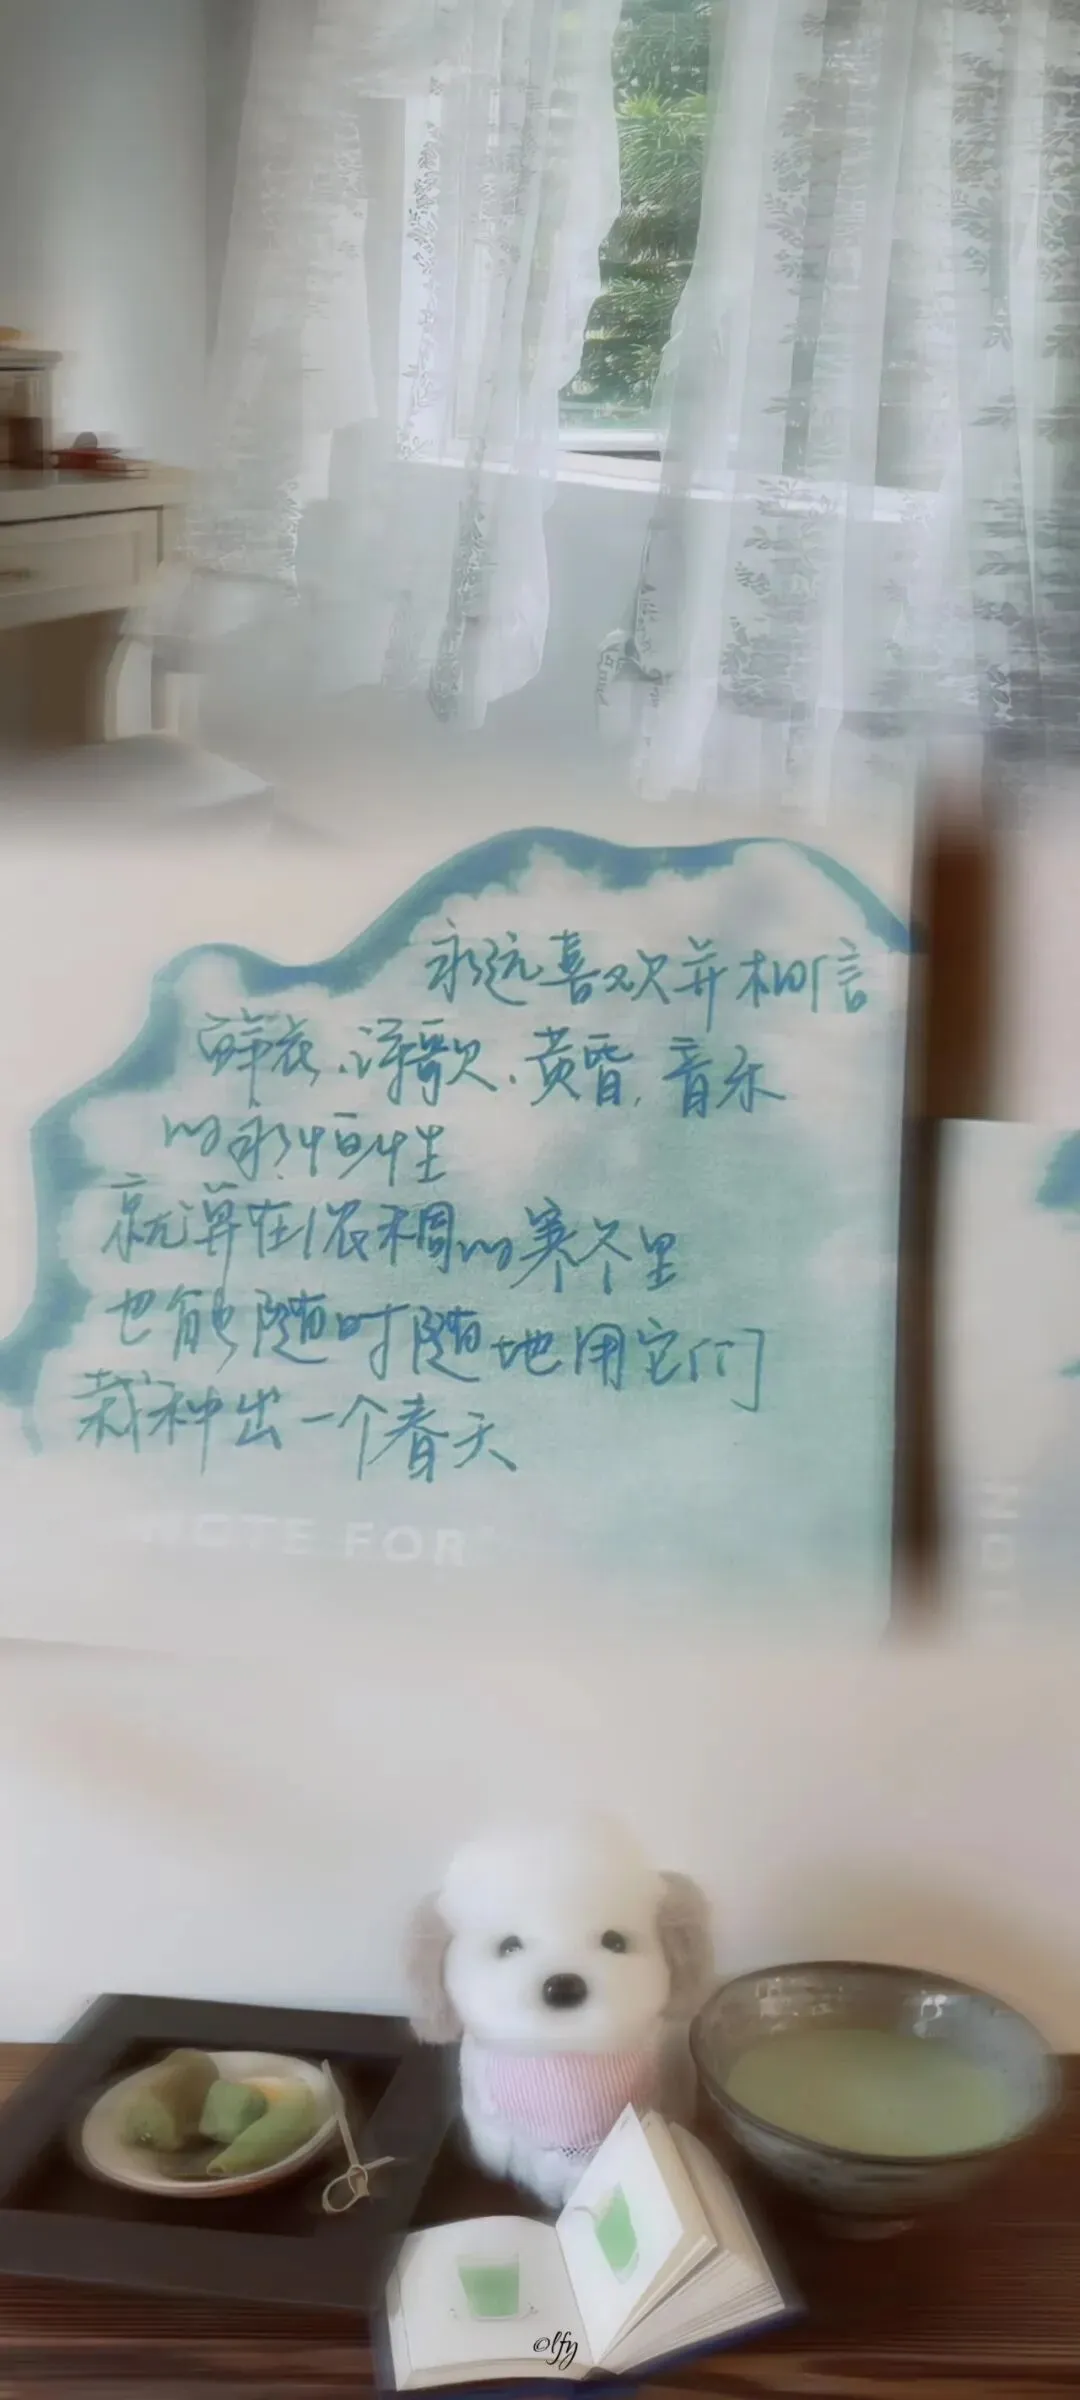 永远喜欢并相信
鲜花、诗歌、黄昏,音乐
的永恒性
就算在浓稠的寒冬里
也能随时随地用它们
栽种出一个春天
NOTE FOR
©lfy